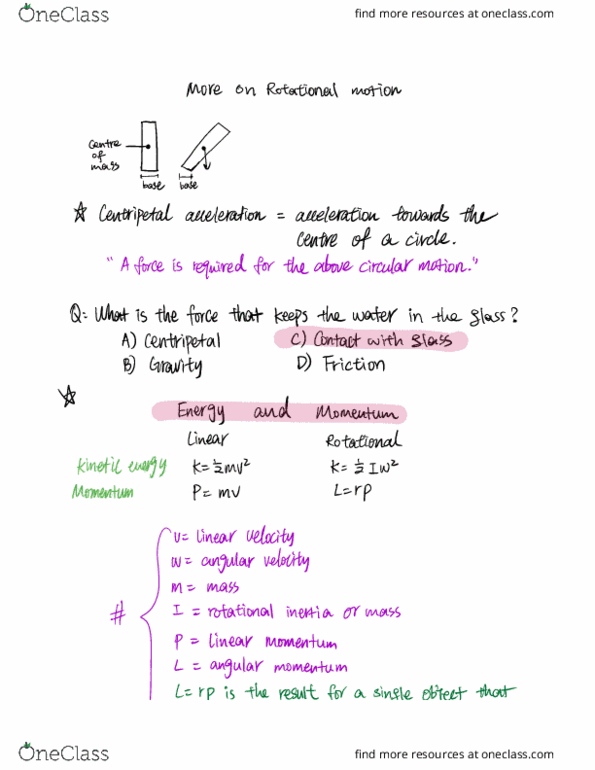 OneClass
find more resources at oneclass.com
More on Rotational motion
Centre
of
mass
base
base
☆ Centripetal acceleration = acceleration towards the
centre of a circle.
"A force is required for the above circular motion."
Q: What is the force that keeps the water in the glass?
A) Centripetal
C) Contact with glass
B) Gravity
D) Friction
☆
Energy and Momentum
Linear
Rotational
Kinetic energy K=½mv² K=½Iw²
Momentum P=mv L=rp
v= linear velocity
w= angular velocity
m= mass
# I = rotational inertia or mass
P = linear momentum
L = angular momentum
L=rp is the result for a single object that
OneClass
find more resources at oneclass.com